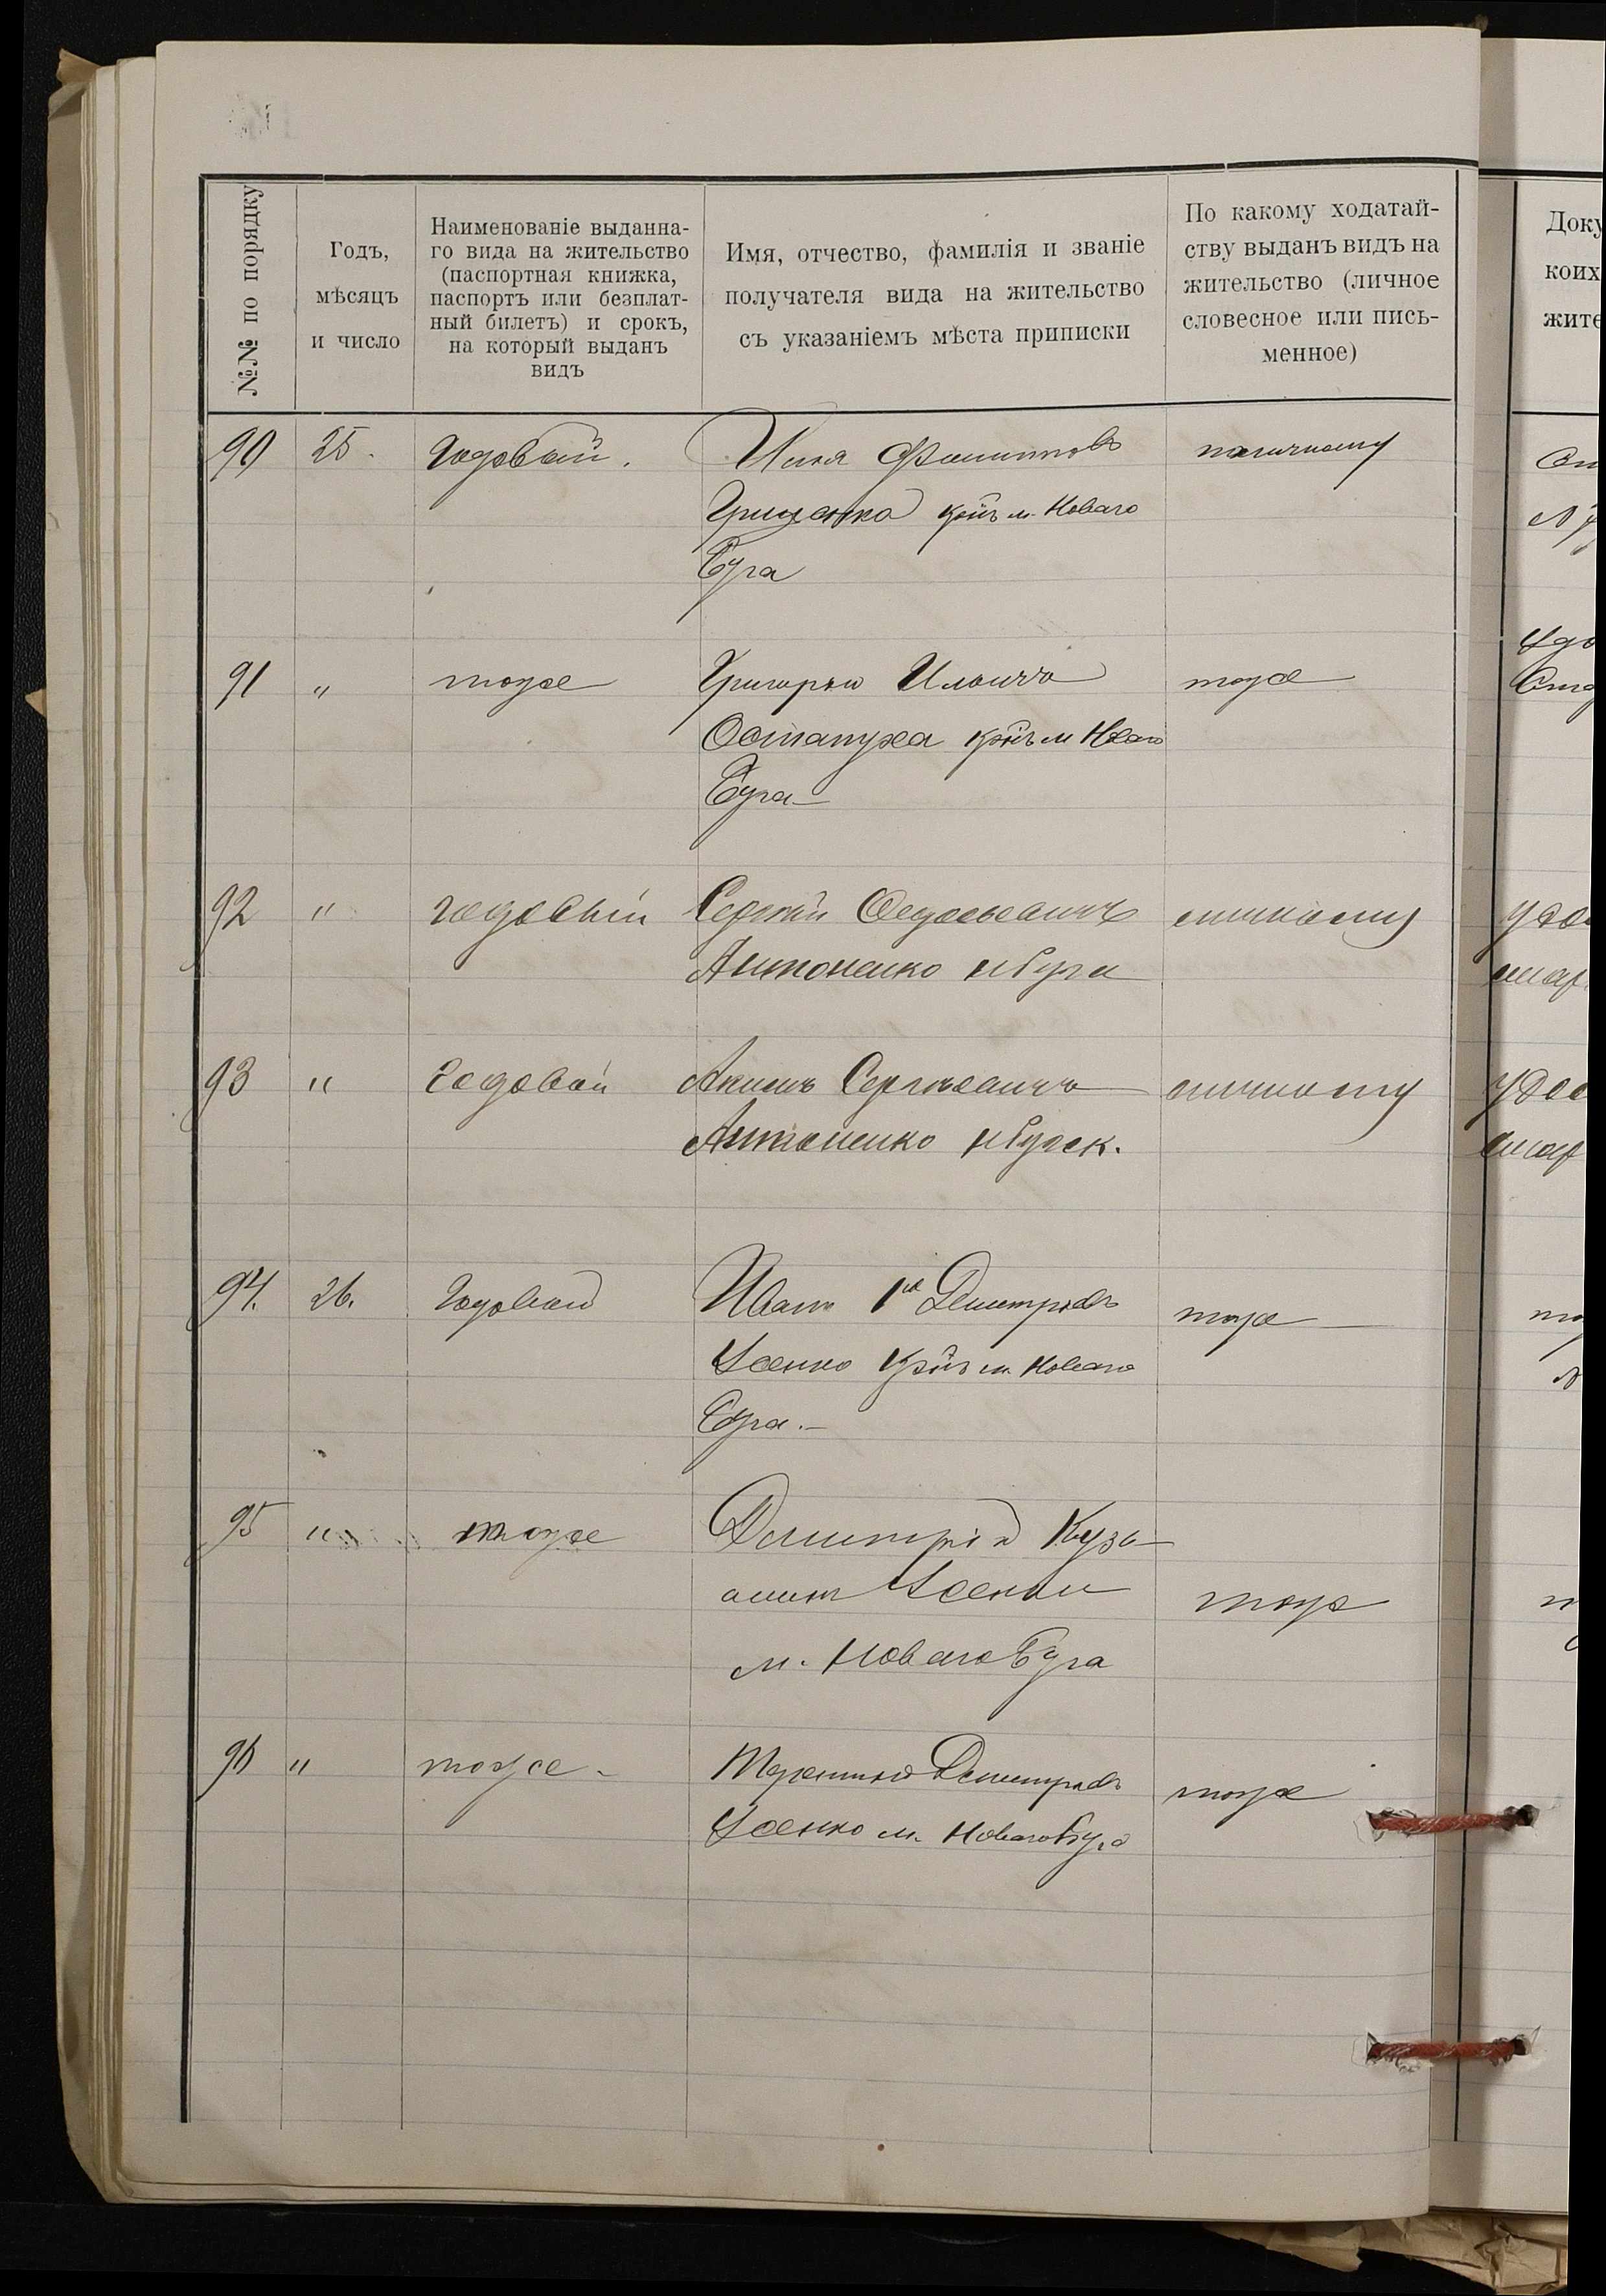 №№ по порядку
Годъ,
мѣсяцъ
и число
Наименованіе выданна-
го вида на жительство
(паспортная книжка,
паспортъ или безплат-
ный билетъ) и срокъ,
на который выданъ
видъ
Имя, отчество, фамилія и званіе
получателя вида на жительство
съ указаніемъ мѣста приписки
По какому ходатай-
ству выданъ видъ на
жительство (личное
словесное или пись-
менное)
Доку
коих
жите
90 25. Годовый. Илья Филиппов
Грищенко м. Новаго
Буга
91 " тоже Григорій Ильичъ тоже
Остапуха м
Буга
92 " годовый Сергѣй личному
Антоненко Нбуга
93 " Годовой Акимъ Сергѣевичъ личному
Антоненко Нбугск.
94. 26. Годовой Иванъ 1й Дмитріевъ тоже
Усенко м. Новаго
Буга.
95 " тоже Дмитрій Кузь-
мичъ Усенко тоже
м. Новаго Буга
96 " тоже Терентій Дмитріевъ тоже
Усенко м. Новаго Буга